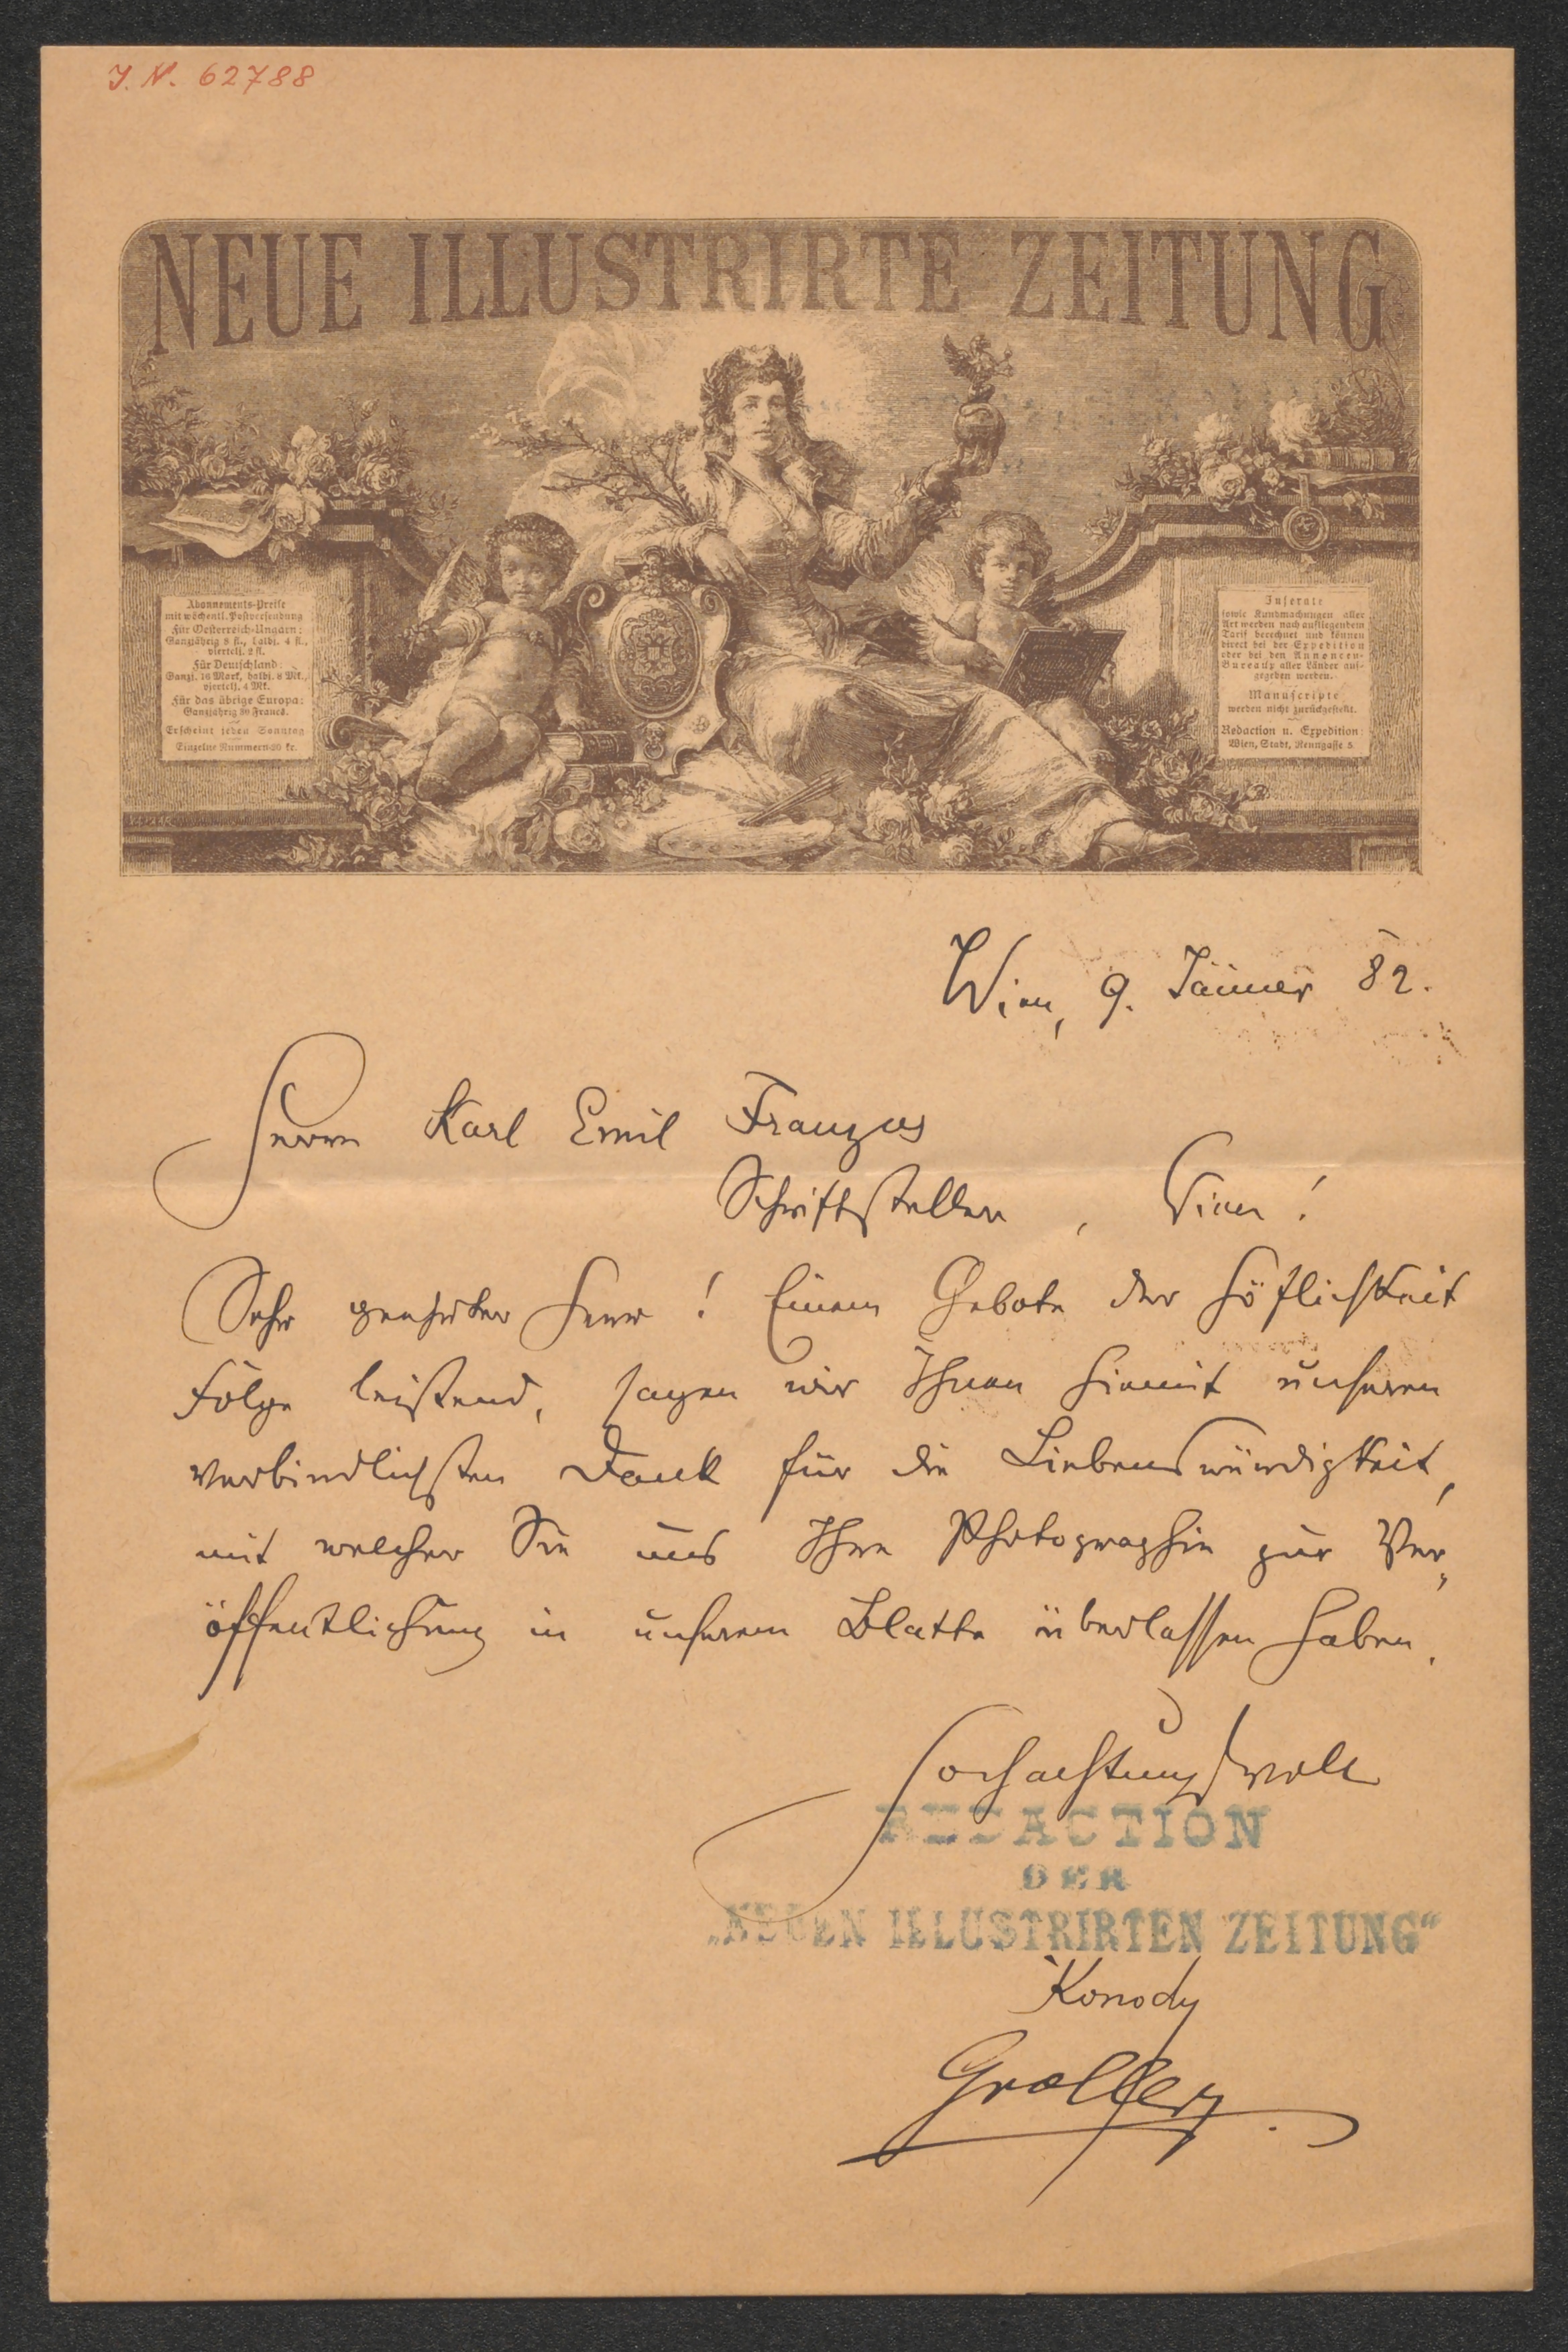 J. N. 62788
NEUE ILLUSTRIRTE ZEITUNG
Abonnements-Preise
mit wöchentl. Postversendung
Für Oesterreich-Ungarn:
Ganzjährig 8 fl., halbj. 4 fl.,
viertelj. 2 fl.
Für Deutschland:
Ganzj. 16 Mark, halbj. 8 Mk.,
viertelj. 4 Mk.
Für das übrige Europa:
Ganzjährig 30 Francs.
Erscheint jeden Sonntag
Einzelne Nummern 20 kr.
Inserate
sowie Kundmachungen aller
Art werden nach aufliegendem
Tarif berechnet und können
direct bei der Expedition
oder bei den Annoncen-
Bureaux aller Länder auf-
gegeben werden.
Manuscripte
werden nicht zurückgestellt.
Redaction u. Expedition:
Wien, Stadt, Renngasse 5.
Wien, 9. Jänner 82.
Herrn Karl Emil Franzos
Schriftsteller, Wien!
Sehr geehrter Herr! Einem Gebote der Höflichkeit
Folge leistend, sagen wir Ihnen hiemit unseren
verbindlichsten Dank für die Liebenswürdigkeit,
mit welcher Sie uns Ihre Photographie zur Ver-
öffentlichung in unserem Blatte überlassen haben.
Hochachtungsvoll
REDACTION
DER
„NEUEN ILLUSTRIRTEN ZEITUNG“
Konody
Groller.